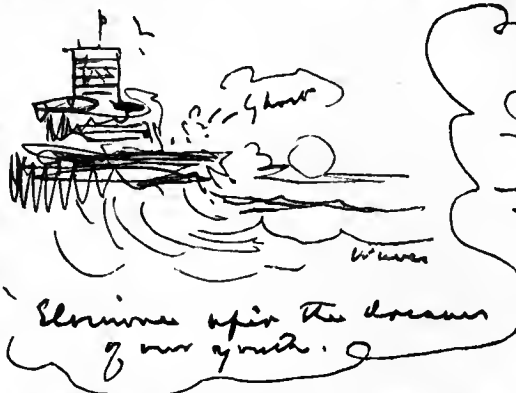 Ghost
Waves
Elsinore the dreams
of our youth.